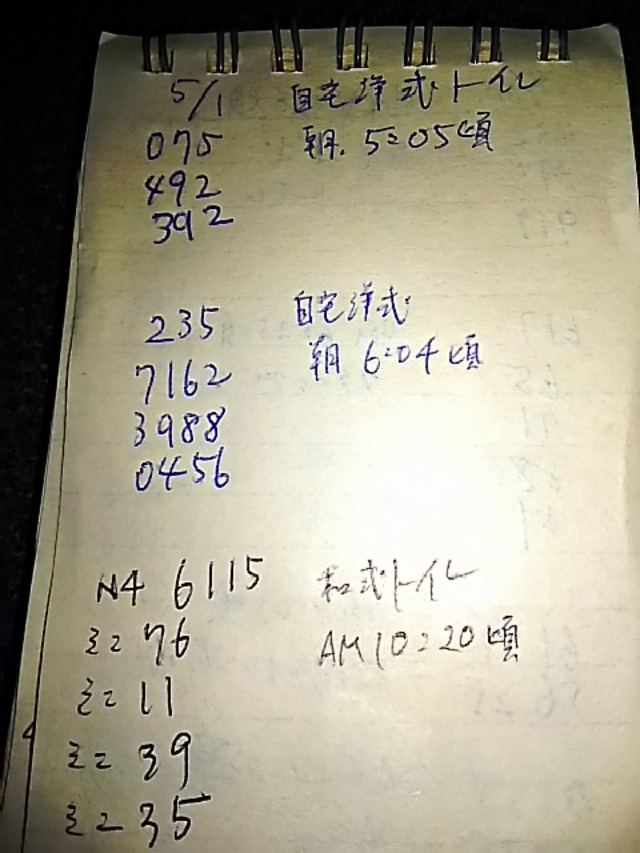 5/1 自宅洋式トイレ
075 朝.5:05頃
492
392
235 自宅洋式
7162 朝 6:04頃
3988
0456
N4 6115 和式トイレ
ミニ 76 AM10:20頃
ミニ 11
ミニ 39
ミニ 35